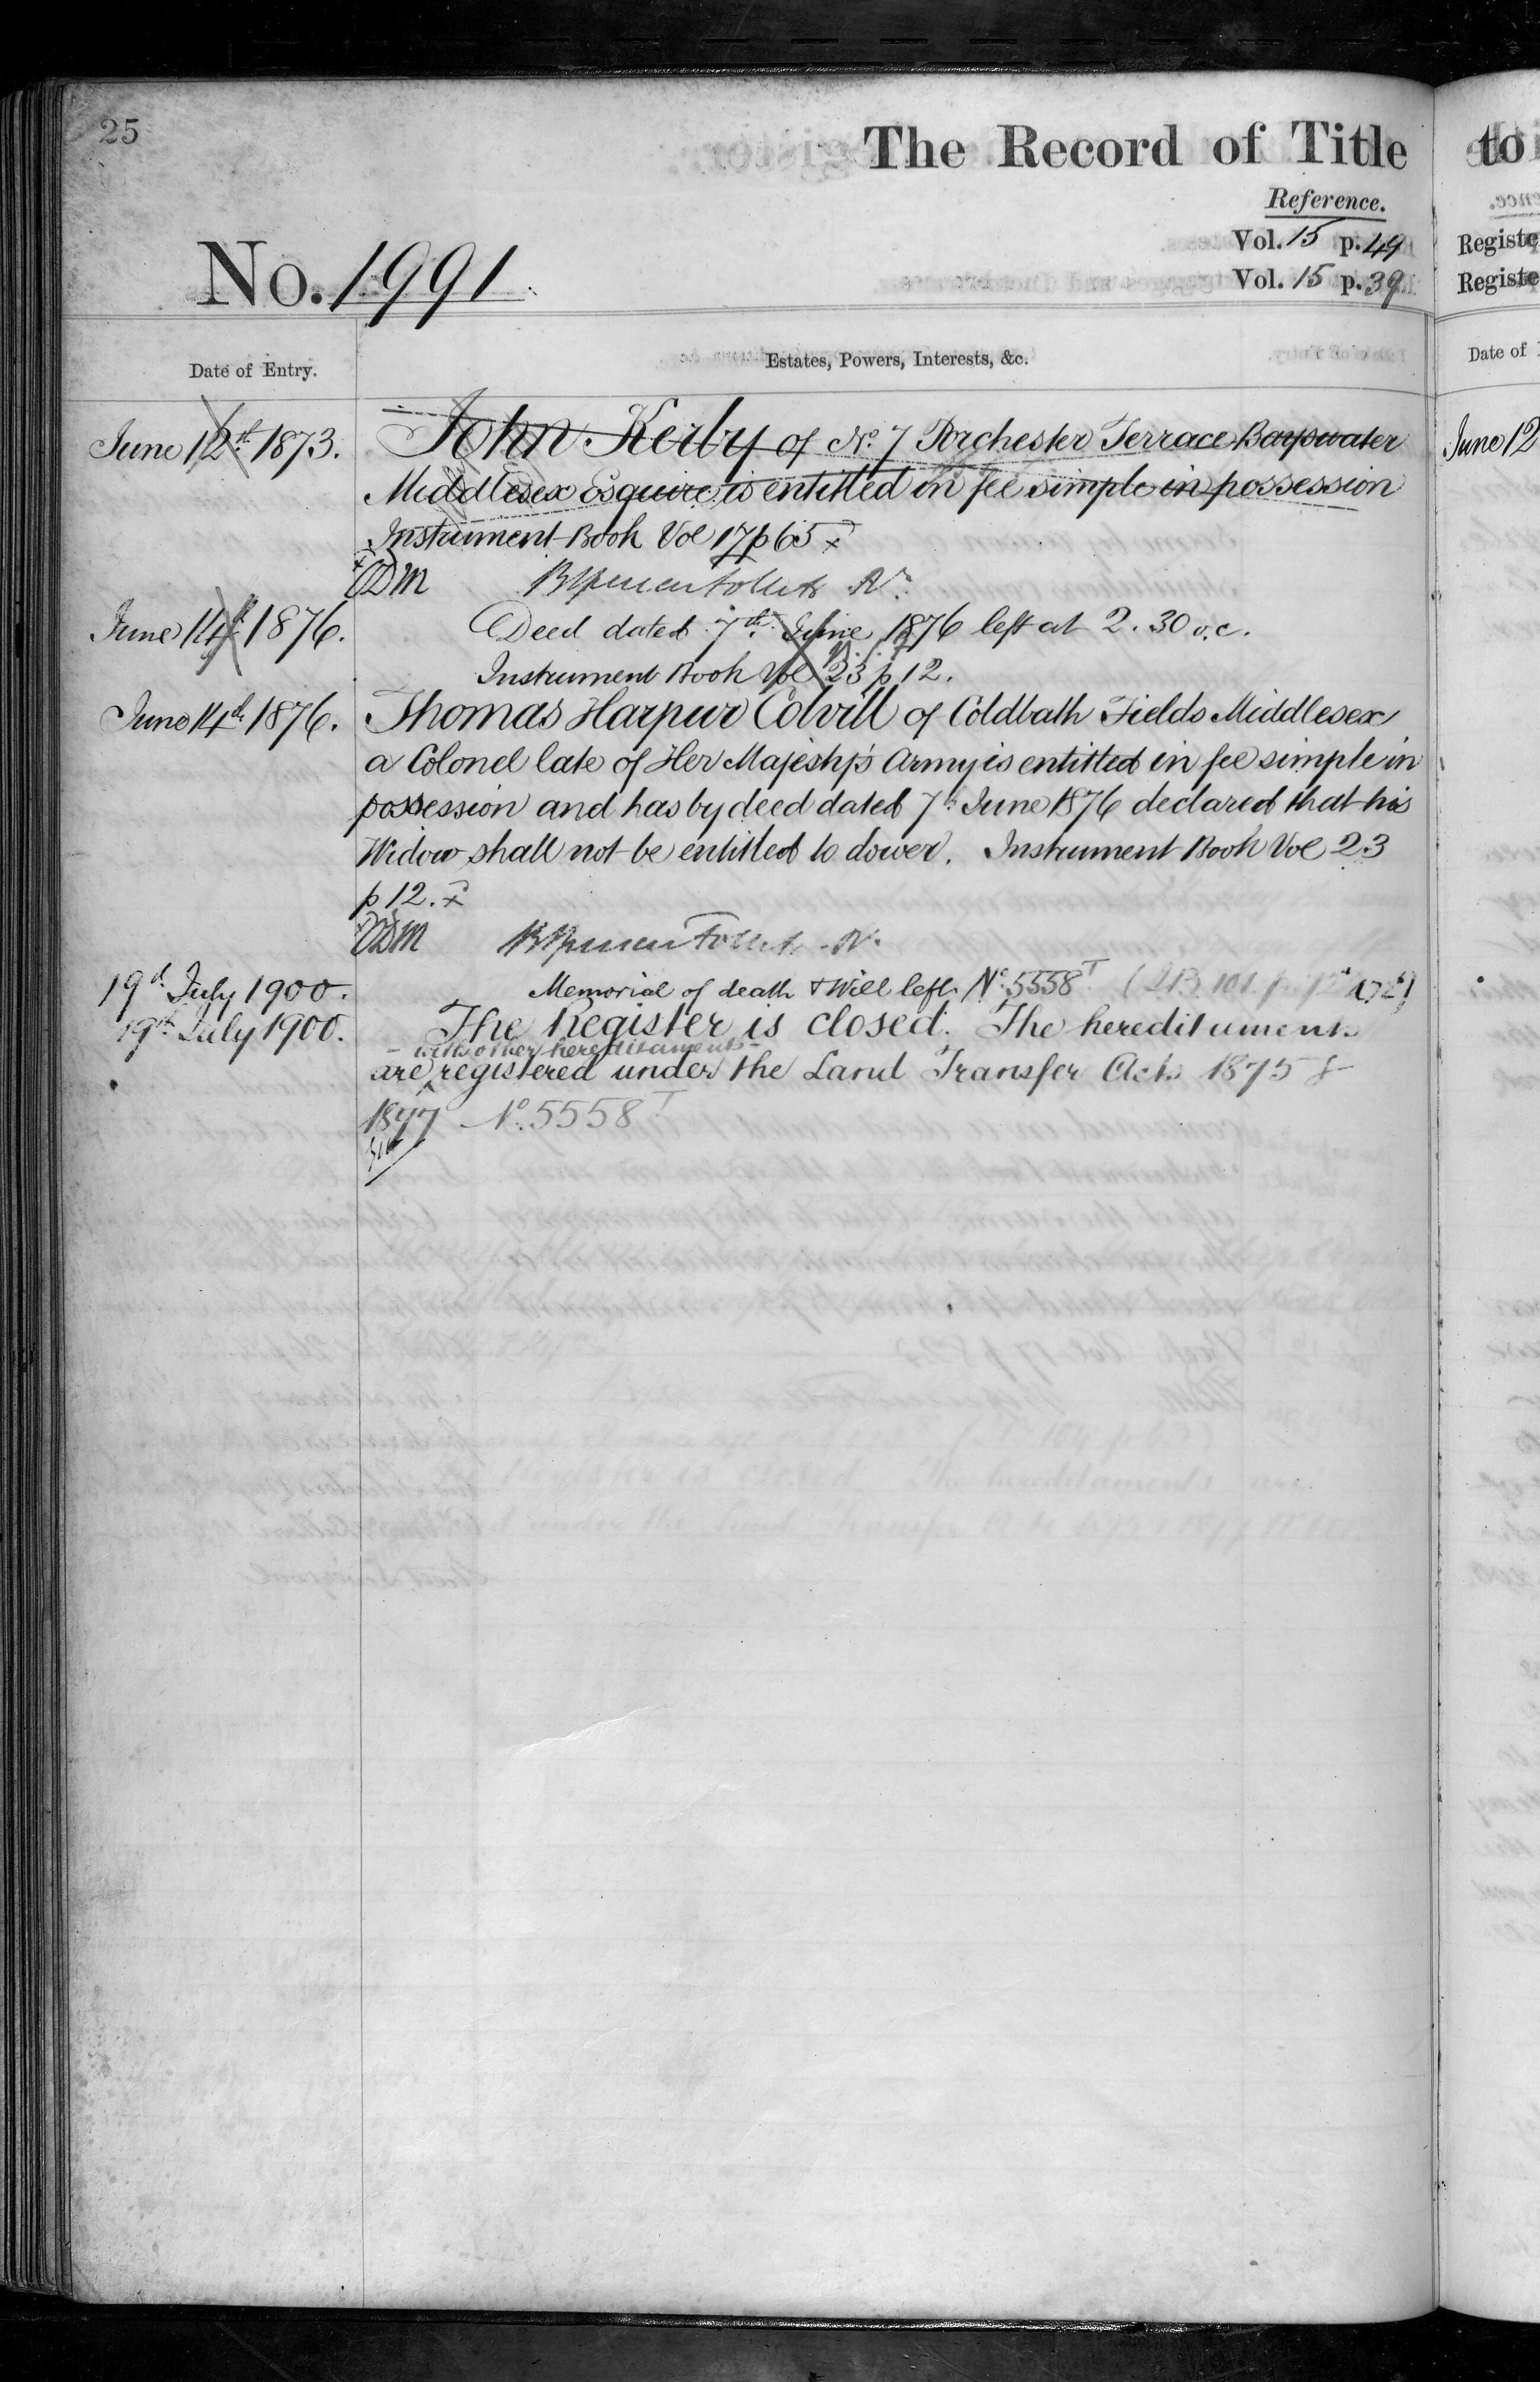 25
The Record of Title
Reference.
Vol. 15 p. 49
Vol. 15 p. 39
No. 1991
Date of Entry.
Estates, Powers, Interests, &c.
June 12th 1873.
John Kerby of No. 7 Porchester Terrace Bayswater
Middlesex Esquire is entitled in fee simple in possession
Instrument Book Vol 17 p 65
June 14th 1876.
Deed dated 7th June 1876 left at 2.30 o.c.
Instrument Book Vol 23 p 12.
June 14th 1876.
Thomas Harpur Colvill of Coldbath Fields Middlesex
a Colonel late of Her Majesty's Army is entitled in fee simple in
possession and has by deed dated 7th June 1876 declared that his
Widow shall not be entitled to dower. Instrument Book Vol 23
p 12.
19th July 1900.
Memorial of death & Will left No. 5558 T
19th July 1900.
The Register is closed. The hereditaments
- with other hereditaments -
are registered under the Land Transfer Acts 1875 &
1897 No. 5558 T
to
Registe
Registe
Date of
June 12